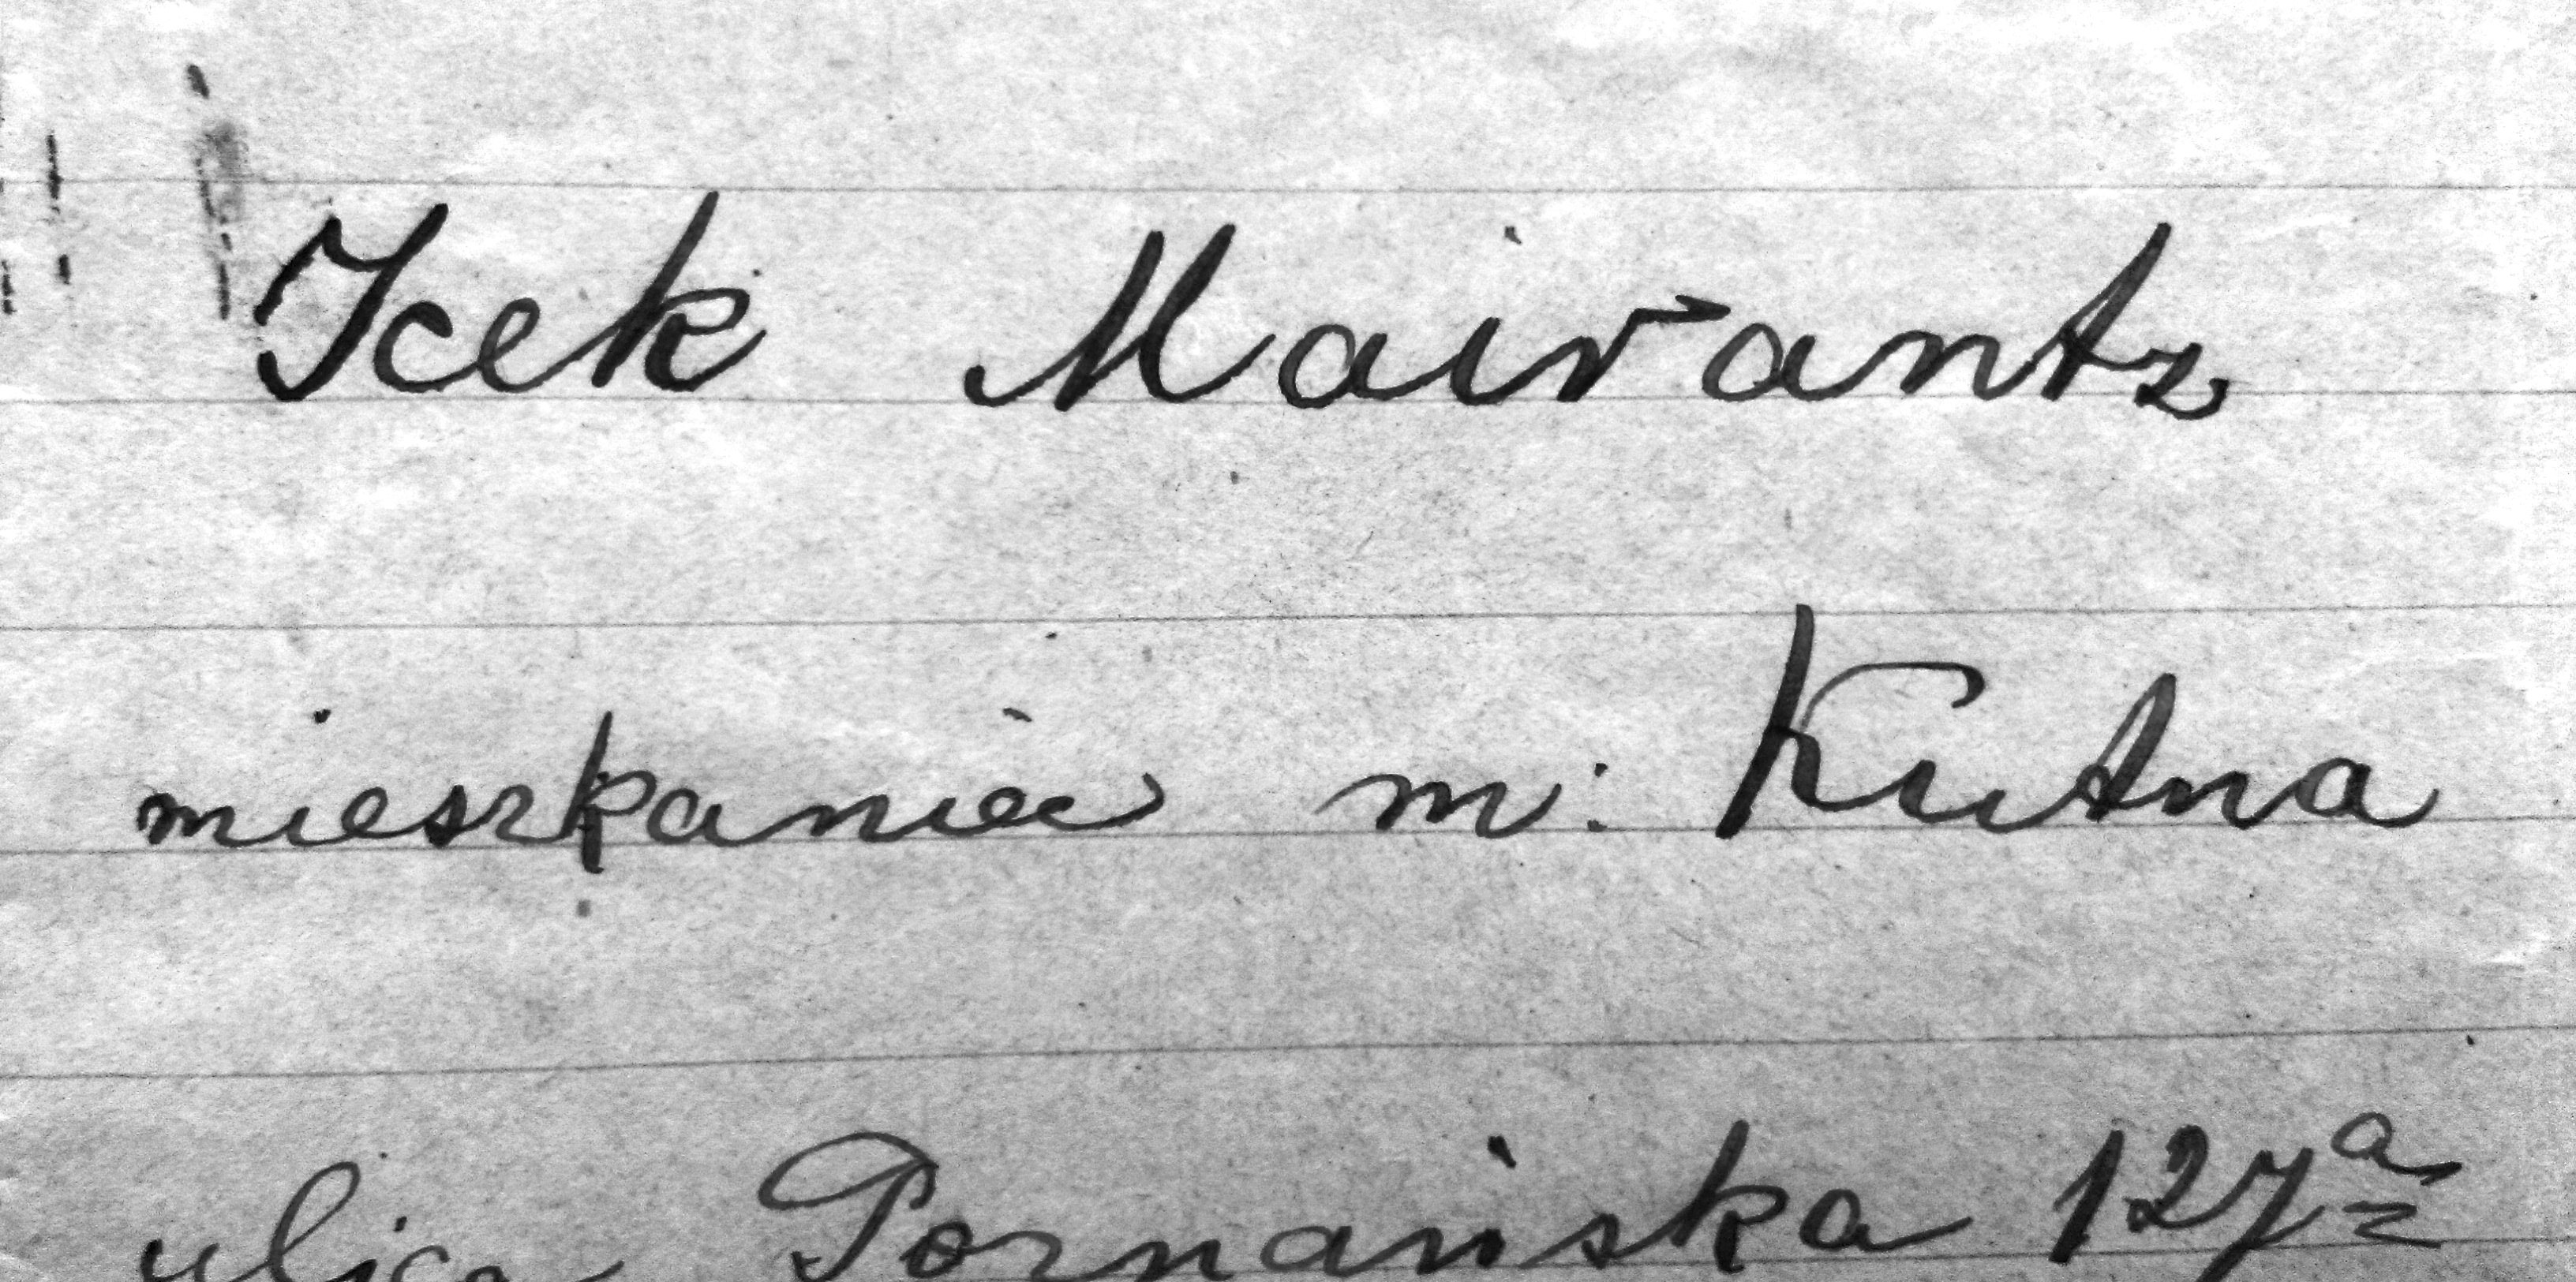 Icek Mairantz
mieszkaniec m. Kutna
ulica Poznańska 127a